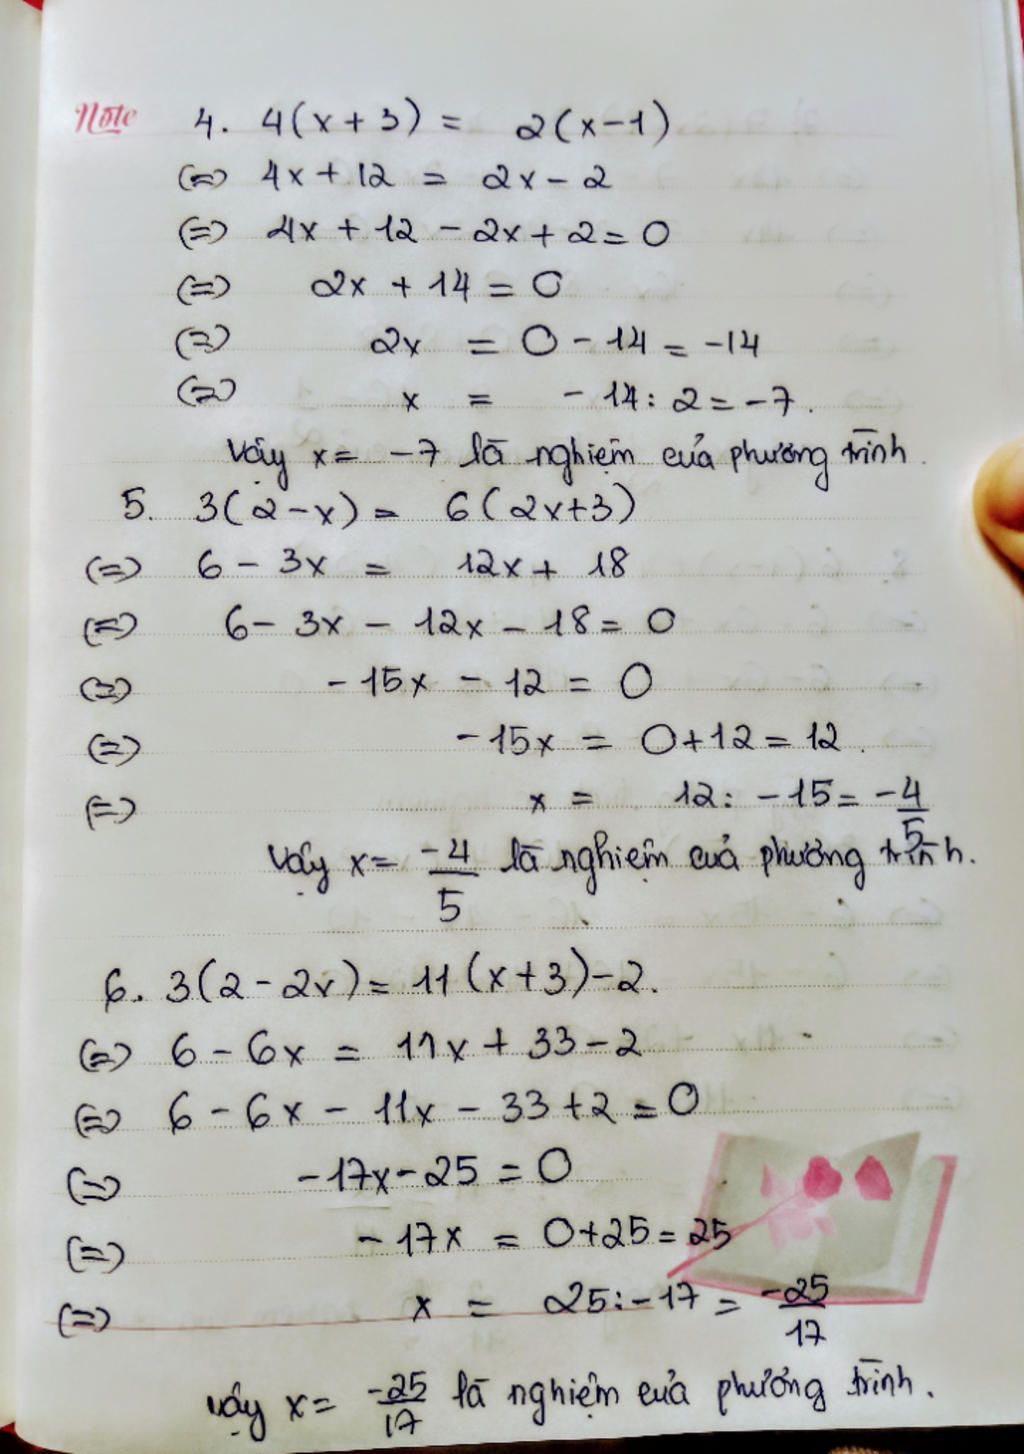 Note
4. 4(x+3) = 2(x-1)
(=) 4x + 12 = 2x - 2
(=) 4x + 12 - 2x + 2 = 0
(=) 2x + 14 = 0
(=) 2x = 0 - 14 = -14
(=) x = -14 : 2 = -7.
Vậy x = -7 là nghiệm của phương trình.
5. 3(2-x) = 6(2x+3)
(=) 6 - 3x = 12x + 18
(=) 6 - 3x - 12x - 18 = 0
(=) -15x - 12 = 0
(=) -15x = 0+12 = 12.
(=) x = 12 : -15 = -4/5
Vậy x = -4/5 là nghiệm của phương trình.
6. 3(2-2x) = 11(x+3)-2.
(=) 6 - 6x = 11x + 33 - 2
(=) 6 - 6x - 11x - 33 + 2 = 0
(=) -17x - 25 = 0
(=) -17x = 0+25 = 25
(=) x = 25 : -17 = -25/17
Vậy x = -25/17 là nghiệm của phương trình.